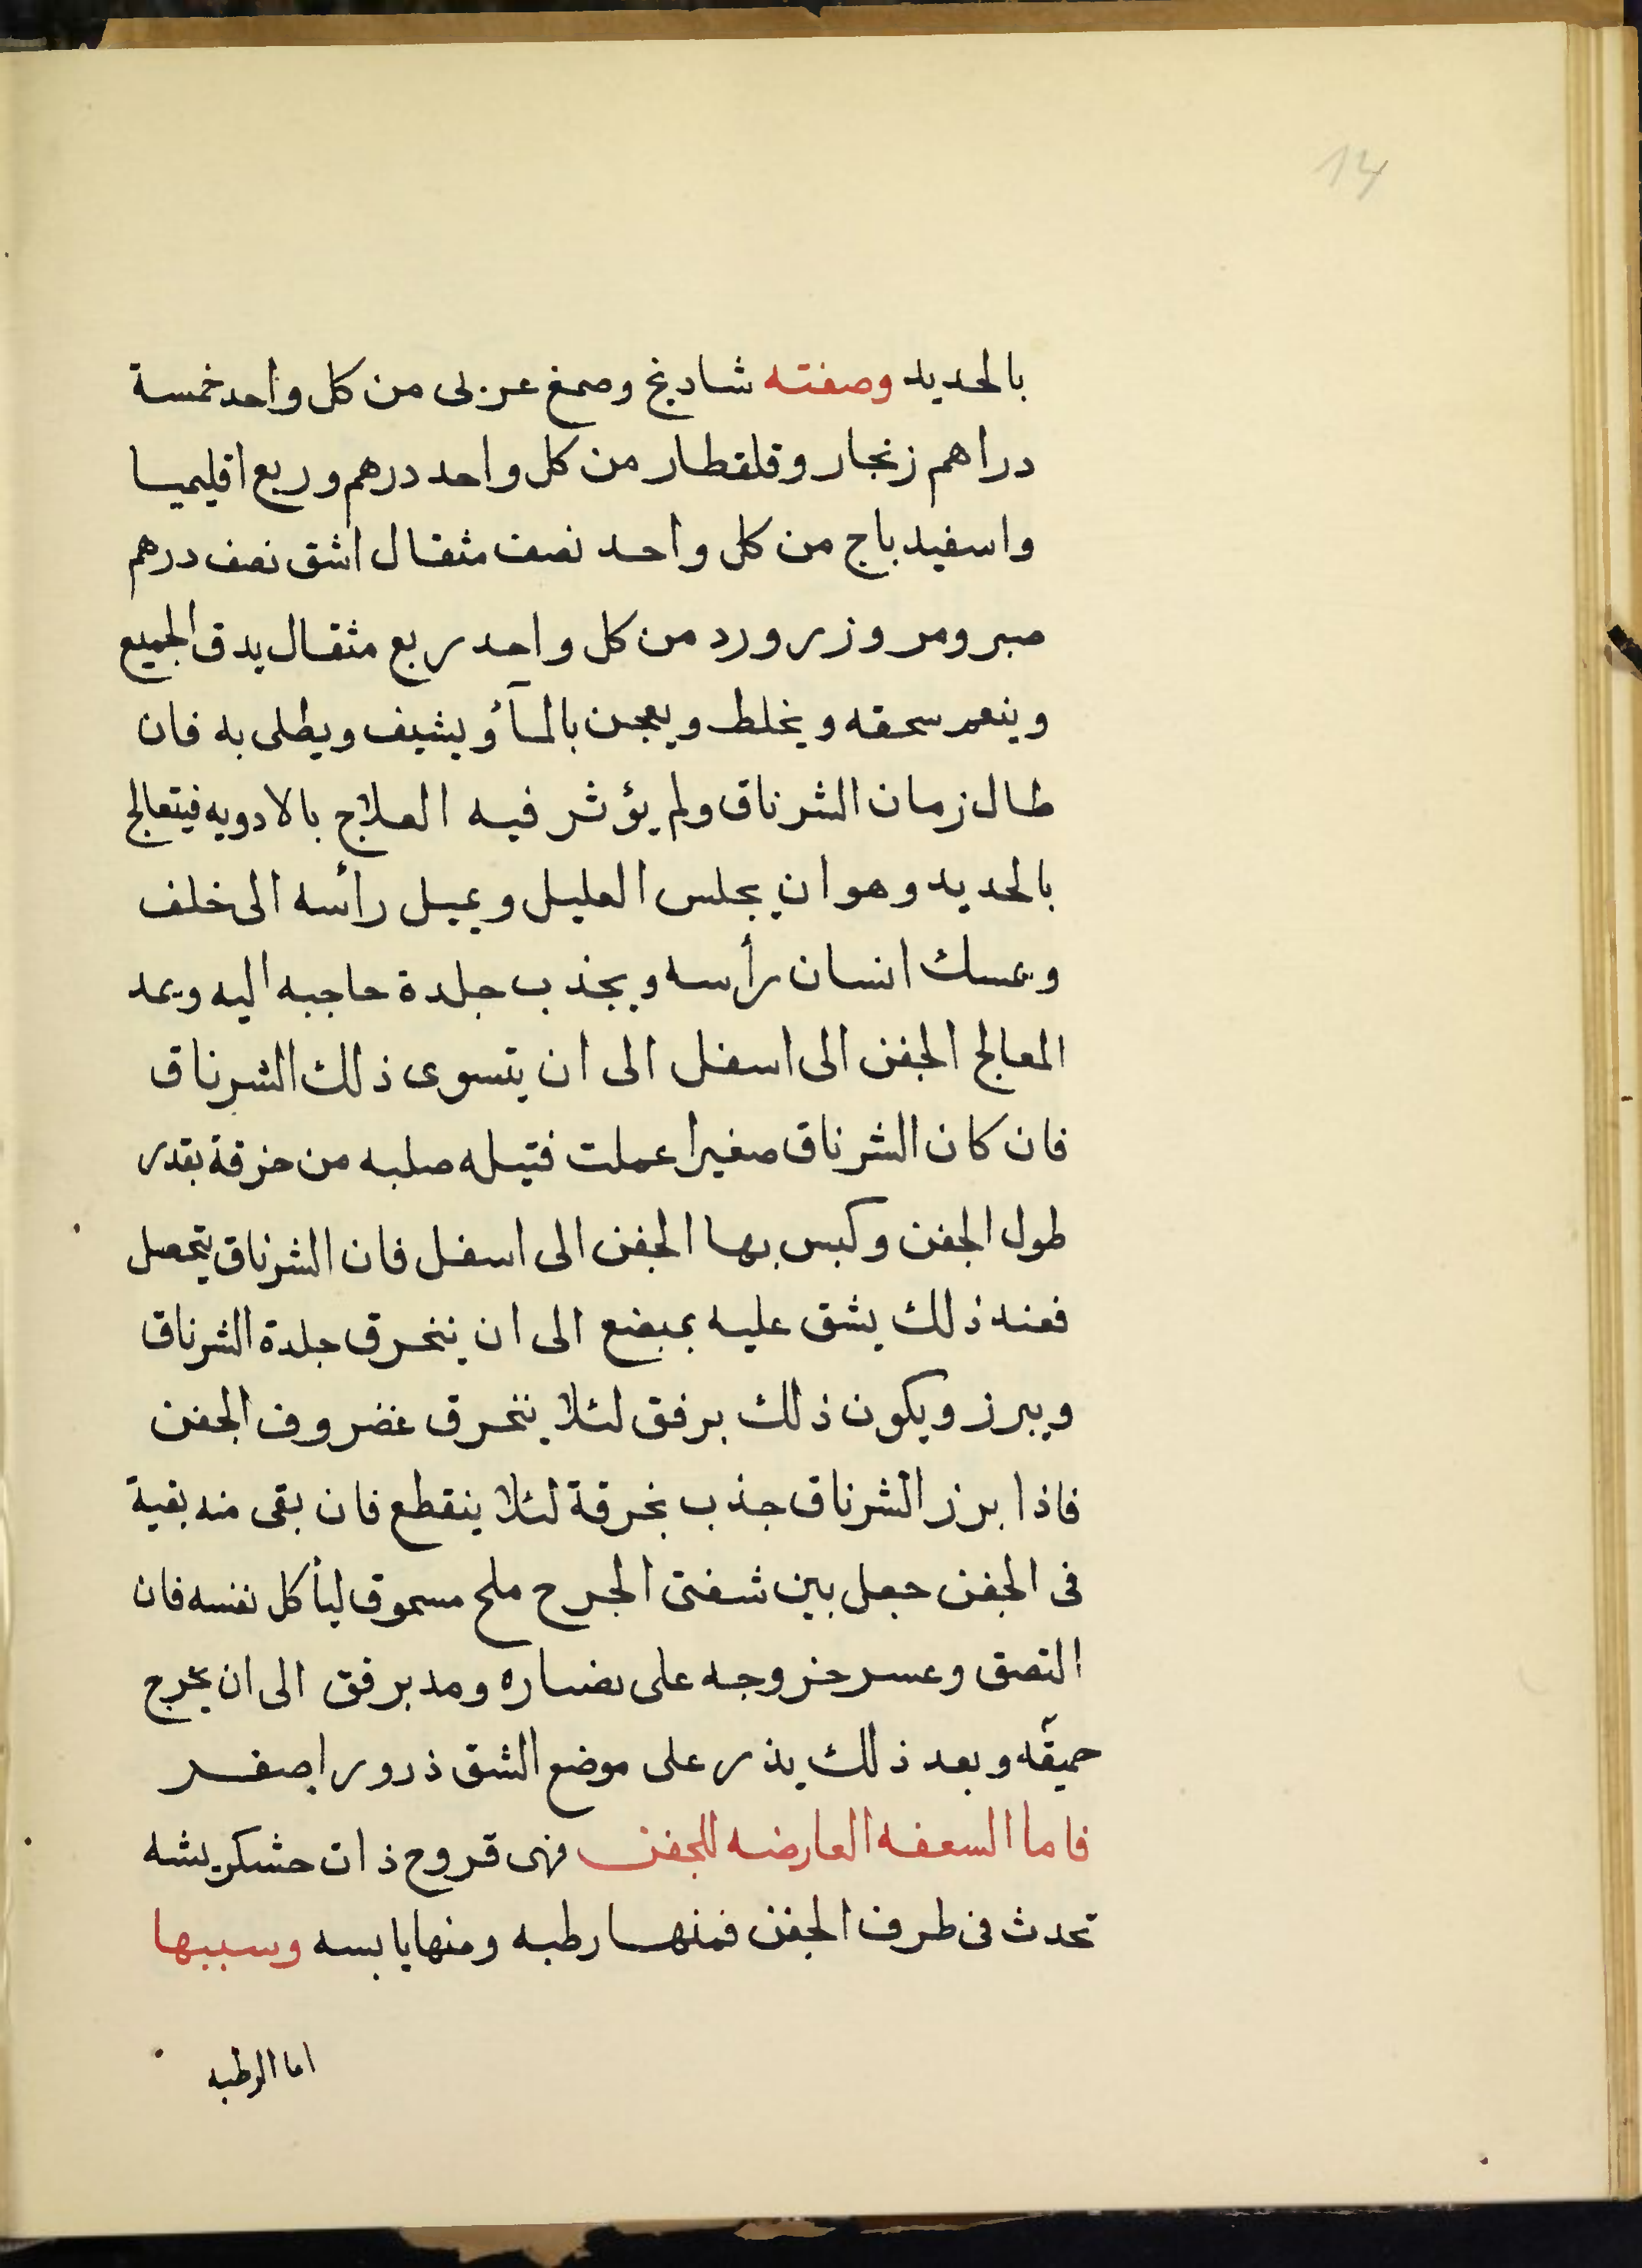 14
بالحديد وصفته شادنج وصمغ عربى من كل واحد خمسة
دراهم زنجار وقلقطار من كل واحد درهم وربع اقليميا
واسفيد باج من كل واحد نصف مثقال اشق نصف درهم
صبر ومر وزر ورد من كل واحد ربع مثقال يدق الجميع
وينعم سحقه ويخلط ويعجن بالمآؤ يشيف ويطلى به فان
طال زمان الشرناق ولم يؤثر فيه العلاج بالادويه فيتعالج
بالحديد وهو ان يجلس العليل ويميل رأسه الى خلف
ويمسك انسان رأسه ويجذب جلدة حاجبه اليه ويمد
المعالج الجفن الى اسفل الى ان يتسوى ذلك الشرناق
فان كان الشرناق صغيرا عملت فتيله صلبه من خرقة بقدر
طول الجفن وكبس بها الجفن الى اسفل فان الشرناق يتحصل
فعند ذلك يشق عليه بمبضع الى ان ينخرق جلدة الشرناق
ويبرز ويكون ذلك برفق لئلا ينخرق غضروف الجفن
فاذا برز الشرناق جذب بخرقة لئلا ينقطع فان بقى منه بقية
فى الجفن جعل بين شفتى الجرح ملح مسحوق ليأكل نفسه فان
التصق وعسر خروجه على ومد برفق الى ان يخرج
وبعد ذلك يذر على موضع الشق ذرورا صفر
فاما السعفه العارضه للجفن فهى قروح ذات خشكريشه
تحدث فى طرف الجفن فمنها رطبه ومنها يابسه وسببها
اما الرطبه